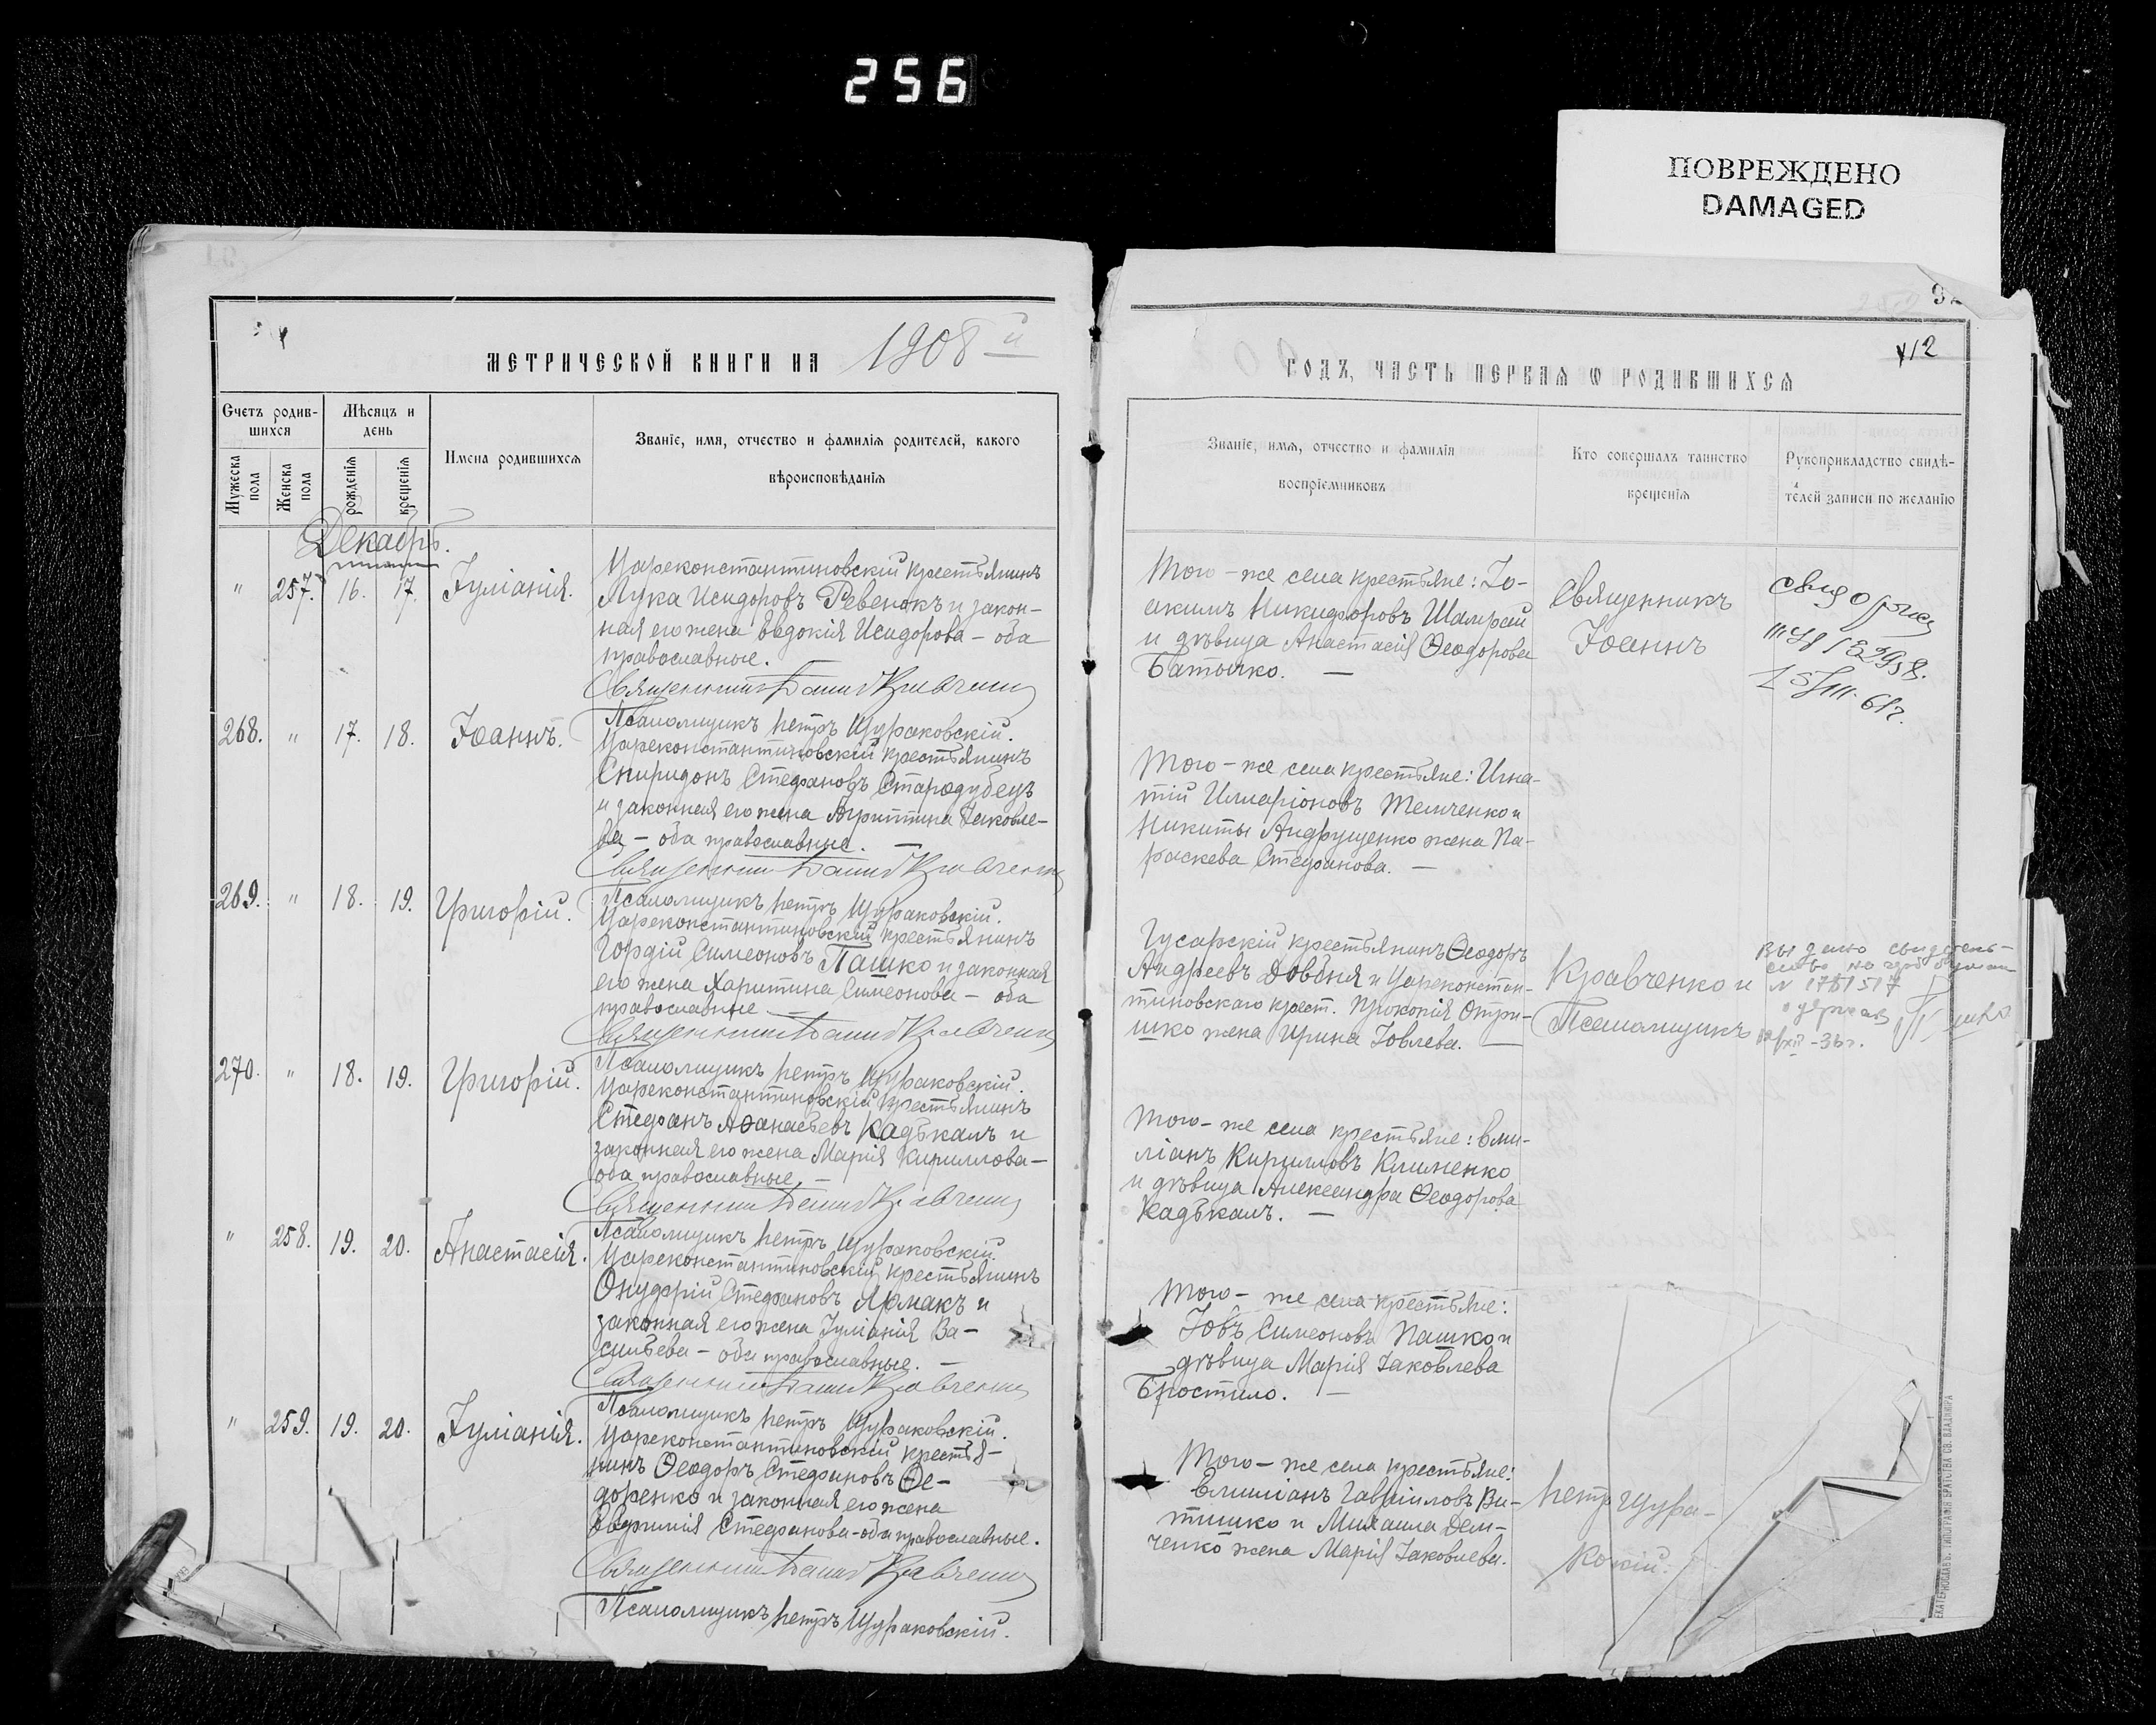 256
ПОВРЕЖДЕНО
DAMAGED
92
412
МЕТРИЧЕСКОЙ КНИГИ НА 1908й
ГОДЪ, ЧАСТЬ ПЕРВАЯ О РОДИВШИХСЯ
Счетъ родив-
шихся
Мужеска пола
Женска пола
Мѣсяцъ и
день
рожденія
крещенія
Имена родившихся
Званіе, имя, отчество и фамилія родителей, какого
вѣроисповѣданія
Званіе, имя, отчество и фамилія
воспріемниковъ
Кто совершалъ таинство
крещенія
Рукоприкладство свидѣ-
телей записи по желанію
Декабрь.
" 257. 16. 17. Іуліанія.
Цареконстантиновскій крестьянинъ
Лука Исидоровъ Ревенокъ и закон-
ная его жена Евдокія Исидорова – оба
православные.
Священникъ Іоаннъ Кравченко
Псаломщикъ Петръ Щураковскій.
Того-же села крестьяне: Іо-
акимъ Никифоровъ Шамрай
и дѣвица Анастасія Ѳеодорова
Батычко. —
Священникъ
Іоаннъ
268. " 17. 18. Іоаннъ.
Цареконстантиновскій крестьянинъ
Спиридонъ Стефановъ Стародубецъ
и законная его жена Агриппина Іаковле-
ва – оба православные. —
Священникъ Іоаннъ Кравченко
Псаломщикъ Петръ Щураковскій.
Того-же села крестьяне: Игна-
тій Иларіоновъ Темченко и
Никиты Андрущенко жена Па-
раскева Стефанова. —
269. " 18. 19. Григорій.
Цареконстантиновскій крестьянинъ
Гордій Симеоновъ Пашко и законная
его жена Харитина Симеонова – оба
православные —
Священникъ Іоаннъ Кравченко
Псаломщикъ Петръ Щураковскій.
Гусарскій крестьянинъ Ѳеодоръ
Андреевъ Довбня и Цареконстан-
тиновскаго крест. Прокопія Отри-
шко жена Ирина Іовлева. —
Кравченко и
Псаломщикъ
270. " 18. 19. Григорій.
Цареконстантиновскій крестьянинъ
Стефанъ Аѳанасьевъ Кадѣкалъ и
законная его жена Марія Кириллова –
оба православные. —
Священникъ Іоаннъ Кравченко
Псаломщикъ Петръ Щураковскій.
Того-же села крестьяне: Еми-
ліанъ Кирилловъ Клименко
и дѣвица Александра Ѳеодорова
Кадѣкалъ. —
" 258. 19. 20. Анастасія.
Цареконстантиновскій крестьянинъ
Онуфрій Стефановъ Ярмакъ и
законная его жена Іуліанія Ва-
сильева – оба православные. —
Священникъ Іоаннъ Кравченко
Псаломщикъ Петръ Щураковскій.
Того-же села крестьяне:
Іовъ Симеоновъ Пашко и
дѣвица Марія Іаковлева
Бростило. —
" 259. 19. 20. Іуліанія.
Цареконстантиновскій крестья-
нинъ Ѳеодоръ Стефановъ Ѳе-
доренко и законная его жена
Евфимія Стефанова – оба православные.
Священникъ Іоаннъ Кравченко
Псаломщикъ Петръ Щураковскій.
Того-же села крестьяне:
Емиліанъ Гавріиловъ Ви-
тишко и Михаила Дем-
ченко жена Марія Іаковлева.
Петръ Щура-
ковскій.
ЕКАТЕРИНОСЛАВЪ. ТИПОГРАФІЯ БРАТСТВА СВ. ВЛАДИМІРА